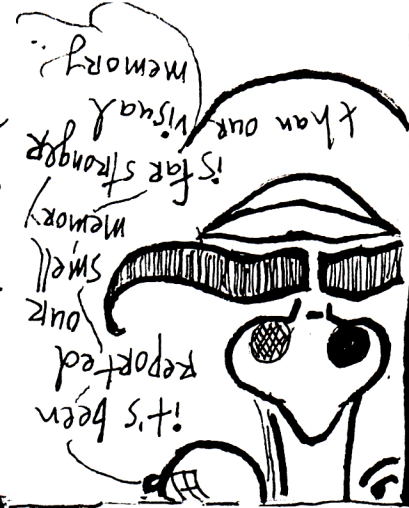 it's been
reported
our
smell
memory
is far stronger
than our
visual
memory..